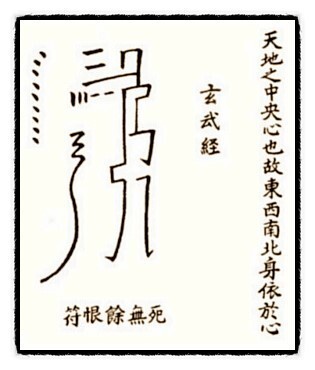 天地之中央心也故東西南北身依於心
玄武経
死無餘恨符